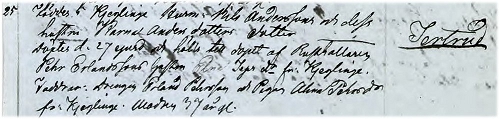 25 Föddes i Kjeglinge Husm: Nils Anderssons och dess
hustru Karna Anders dotters dotter
Döptes d. 27 ejusd och hölls til dopet af Rusthållaren
Pehr Erlandssons hustru Jeps Dr fr: Kjeglinge.
Faddrar: Drengen Erland Pehrsson och Pigan Pehrs dr
fr: Kjeglinge. Modren 37 år gl.
Jertrud